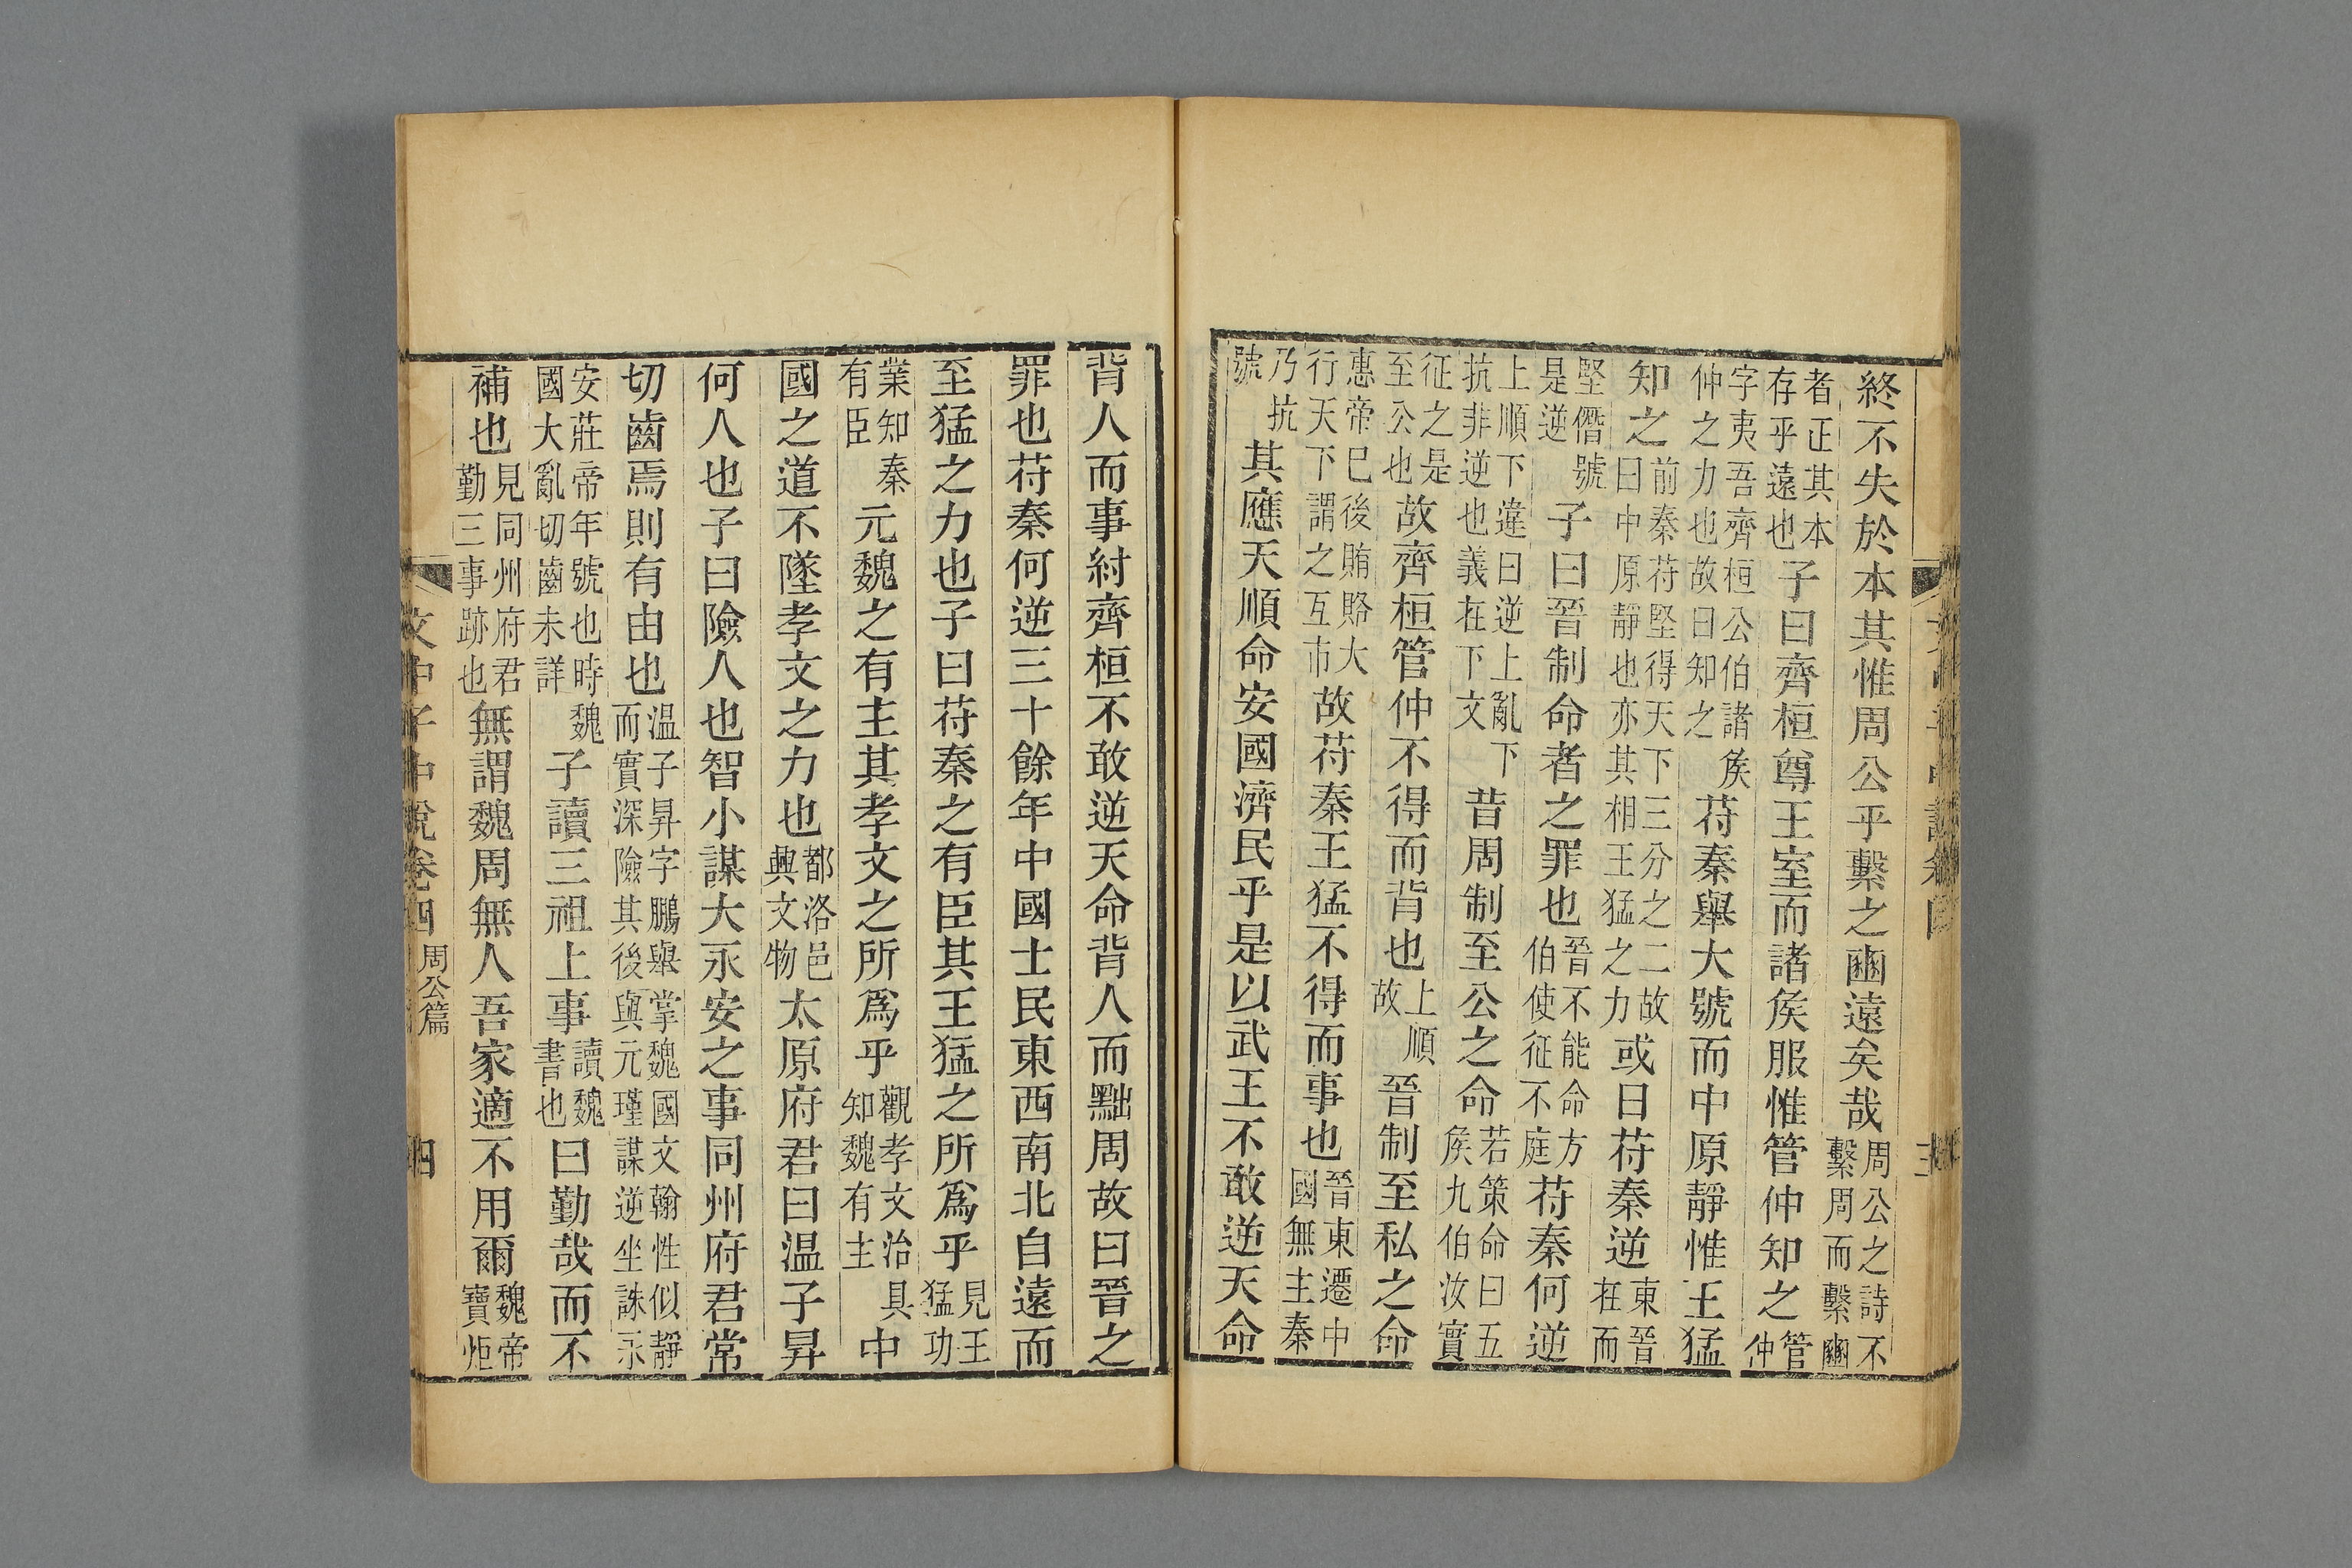 終不失於本其惟周公乎繫之豳遠矣哉周公之詩不繫周而繫豳
者正其本存乎遠也子曰齊桓尊王室而諸矦服惟管仲知之管仲
字夷吾齊桓公伯諸矦仲之力也故曰知之苻秦舉大號而中原靜惟王猛
知之前秦苻堅得天下三分之二故曰中原靜也亦其相王猛之力或曰苻秦逆東晉在而
堅僭號是逆子曰晉制命者之罪也晉不能命方伯使征不庭苻秦何逆
上順下違曰逆上亂下抗非逆也義在下文昔周制至公之命若策命曰五矦九伯汝實
征之是至公也故齊桓管仲不得而背也上順故晉制至私之命
惠帝已後賄賂大行天下謂之互市故苻秦王猛不得而事也晉東遷中國無主秦
乃抗號其應天順命安國濟民乎是以武王不敢逆天命
背人而事紂齊桓不敢逆天命背人而黜周故曰晉之
罪也苻秦何逆三十餘年中國士民東西南北自遠而
至猛之力也子曰苻秦之有臣其王猛之所爲乎見王猛功
業知秦有臣元魏之有主其孝文之所爲乎觀孝文治具知魏有主中
國之道不墜孝文之力也都洛邑興文物太原府君曰温子昇
何人也子曰險人也智小謀大永安之事同州府君常
切齒焉則有由也温子昇字鵬舉掌魏國文翰性似靜而實深險其後與元瑾謀逆坐誅永
安莊帝年號也時魏國大亂切齒未詳子讀三祖上事讀魏書也曰勤哉而不
補也見同州府君勤三事跡也無謂魏周無人吾家適不用爾魏帝寶炬
文中子中說卷四 周公篇 四